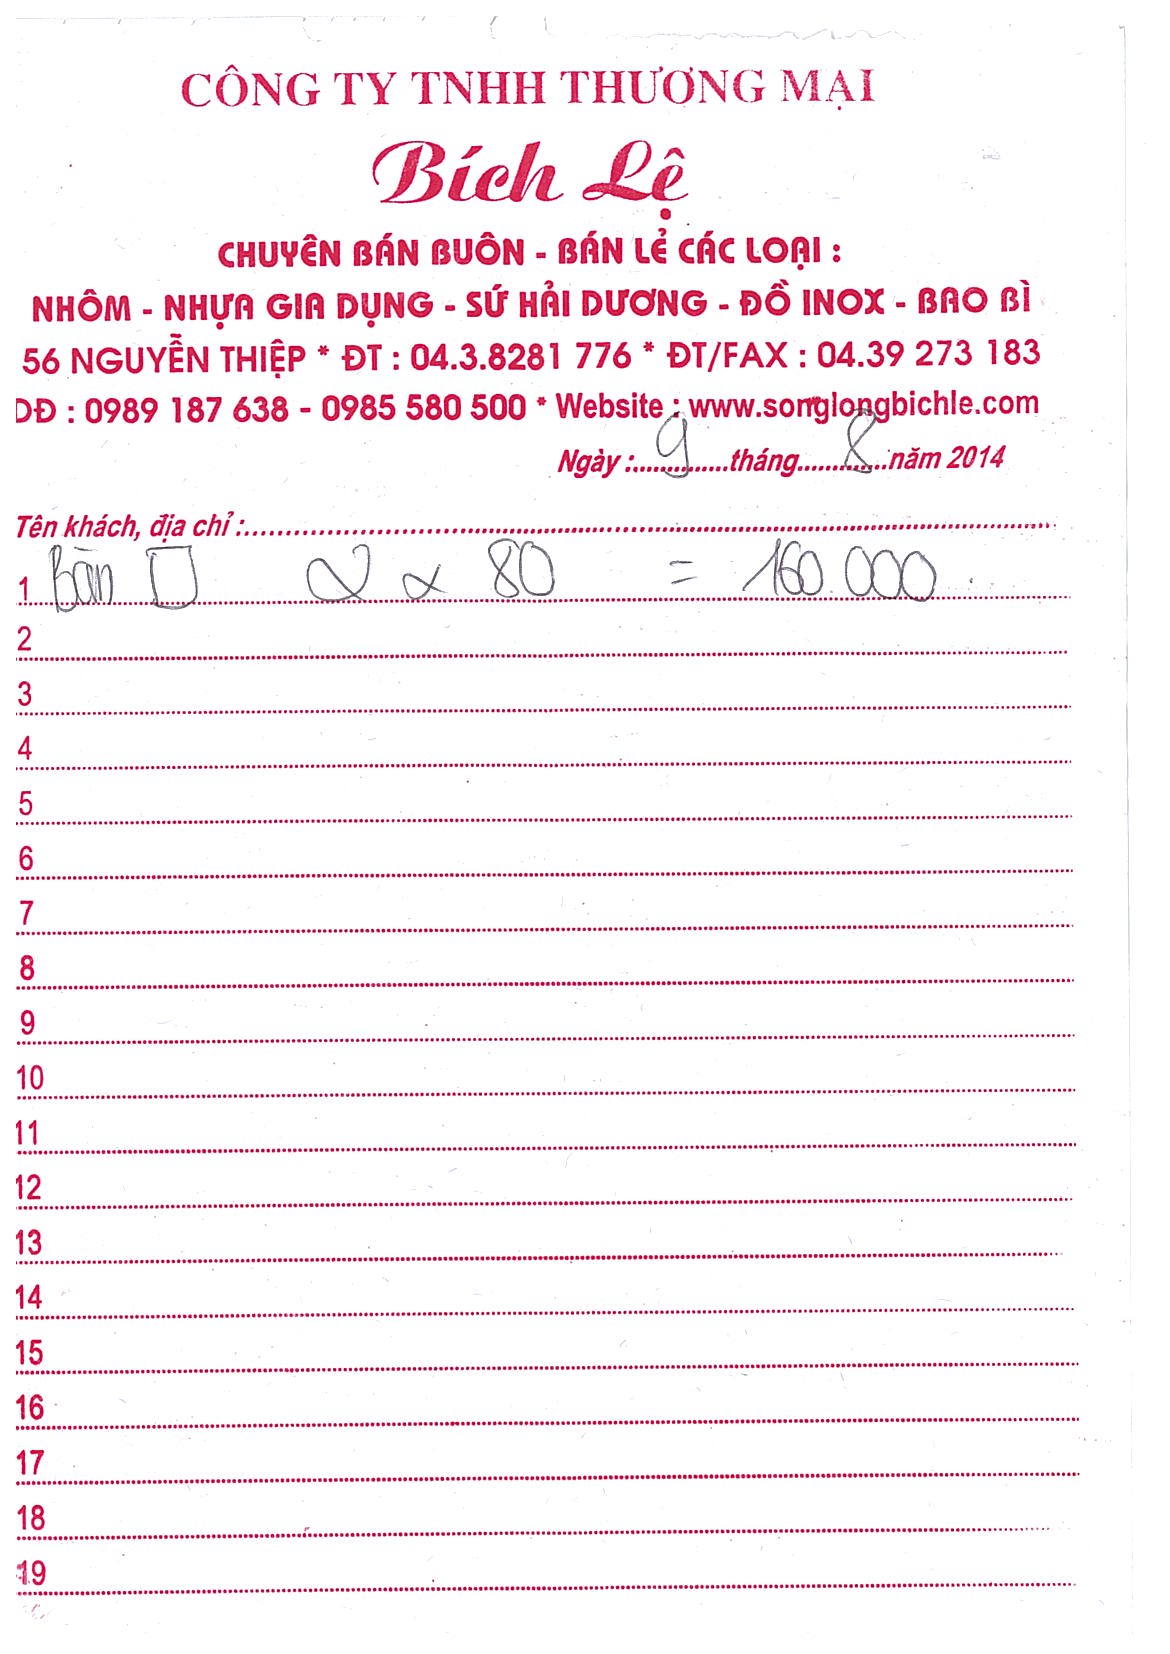 CÔNG TY TNHH THƯƠNG MẠI
Bích Lệ
CHUYÊN BÁN BUÔN - BÁN LẺ CÁC LOẠI :
NHÔM - NHỰA GIA DỤNG - SỨ HẢI DƯƠNG - ĐỒ INOX - BAO BÌ
56 NGUYỄN THIỆP * ĐT : 04.3.8281 776 * ĐT/FAX : 04.39 273 183
DĐ : 0989 187 638 - 0985 580 500 * Website : www.songlongbichle.com
Ngày : 9 tháng 8 năm 2014
Tên khách, địa chỉ :
1 Bàn □ 2 x 80 = 160.000
2
3
4
5
6
7
8
9
10
11
12
13
14
15
16
17
18
19